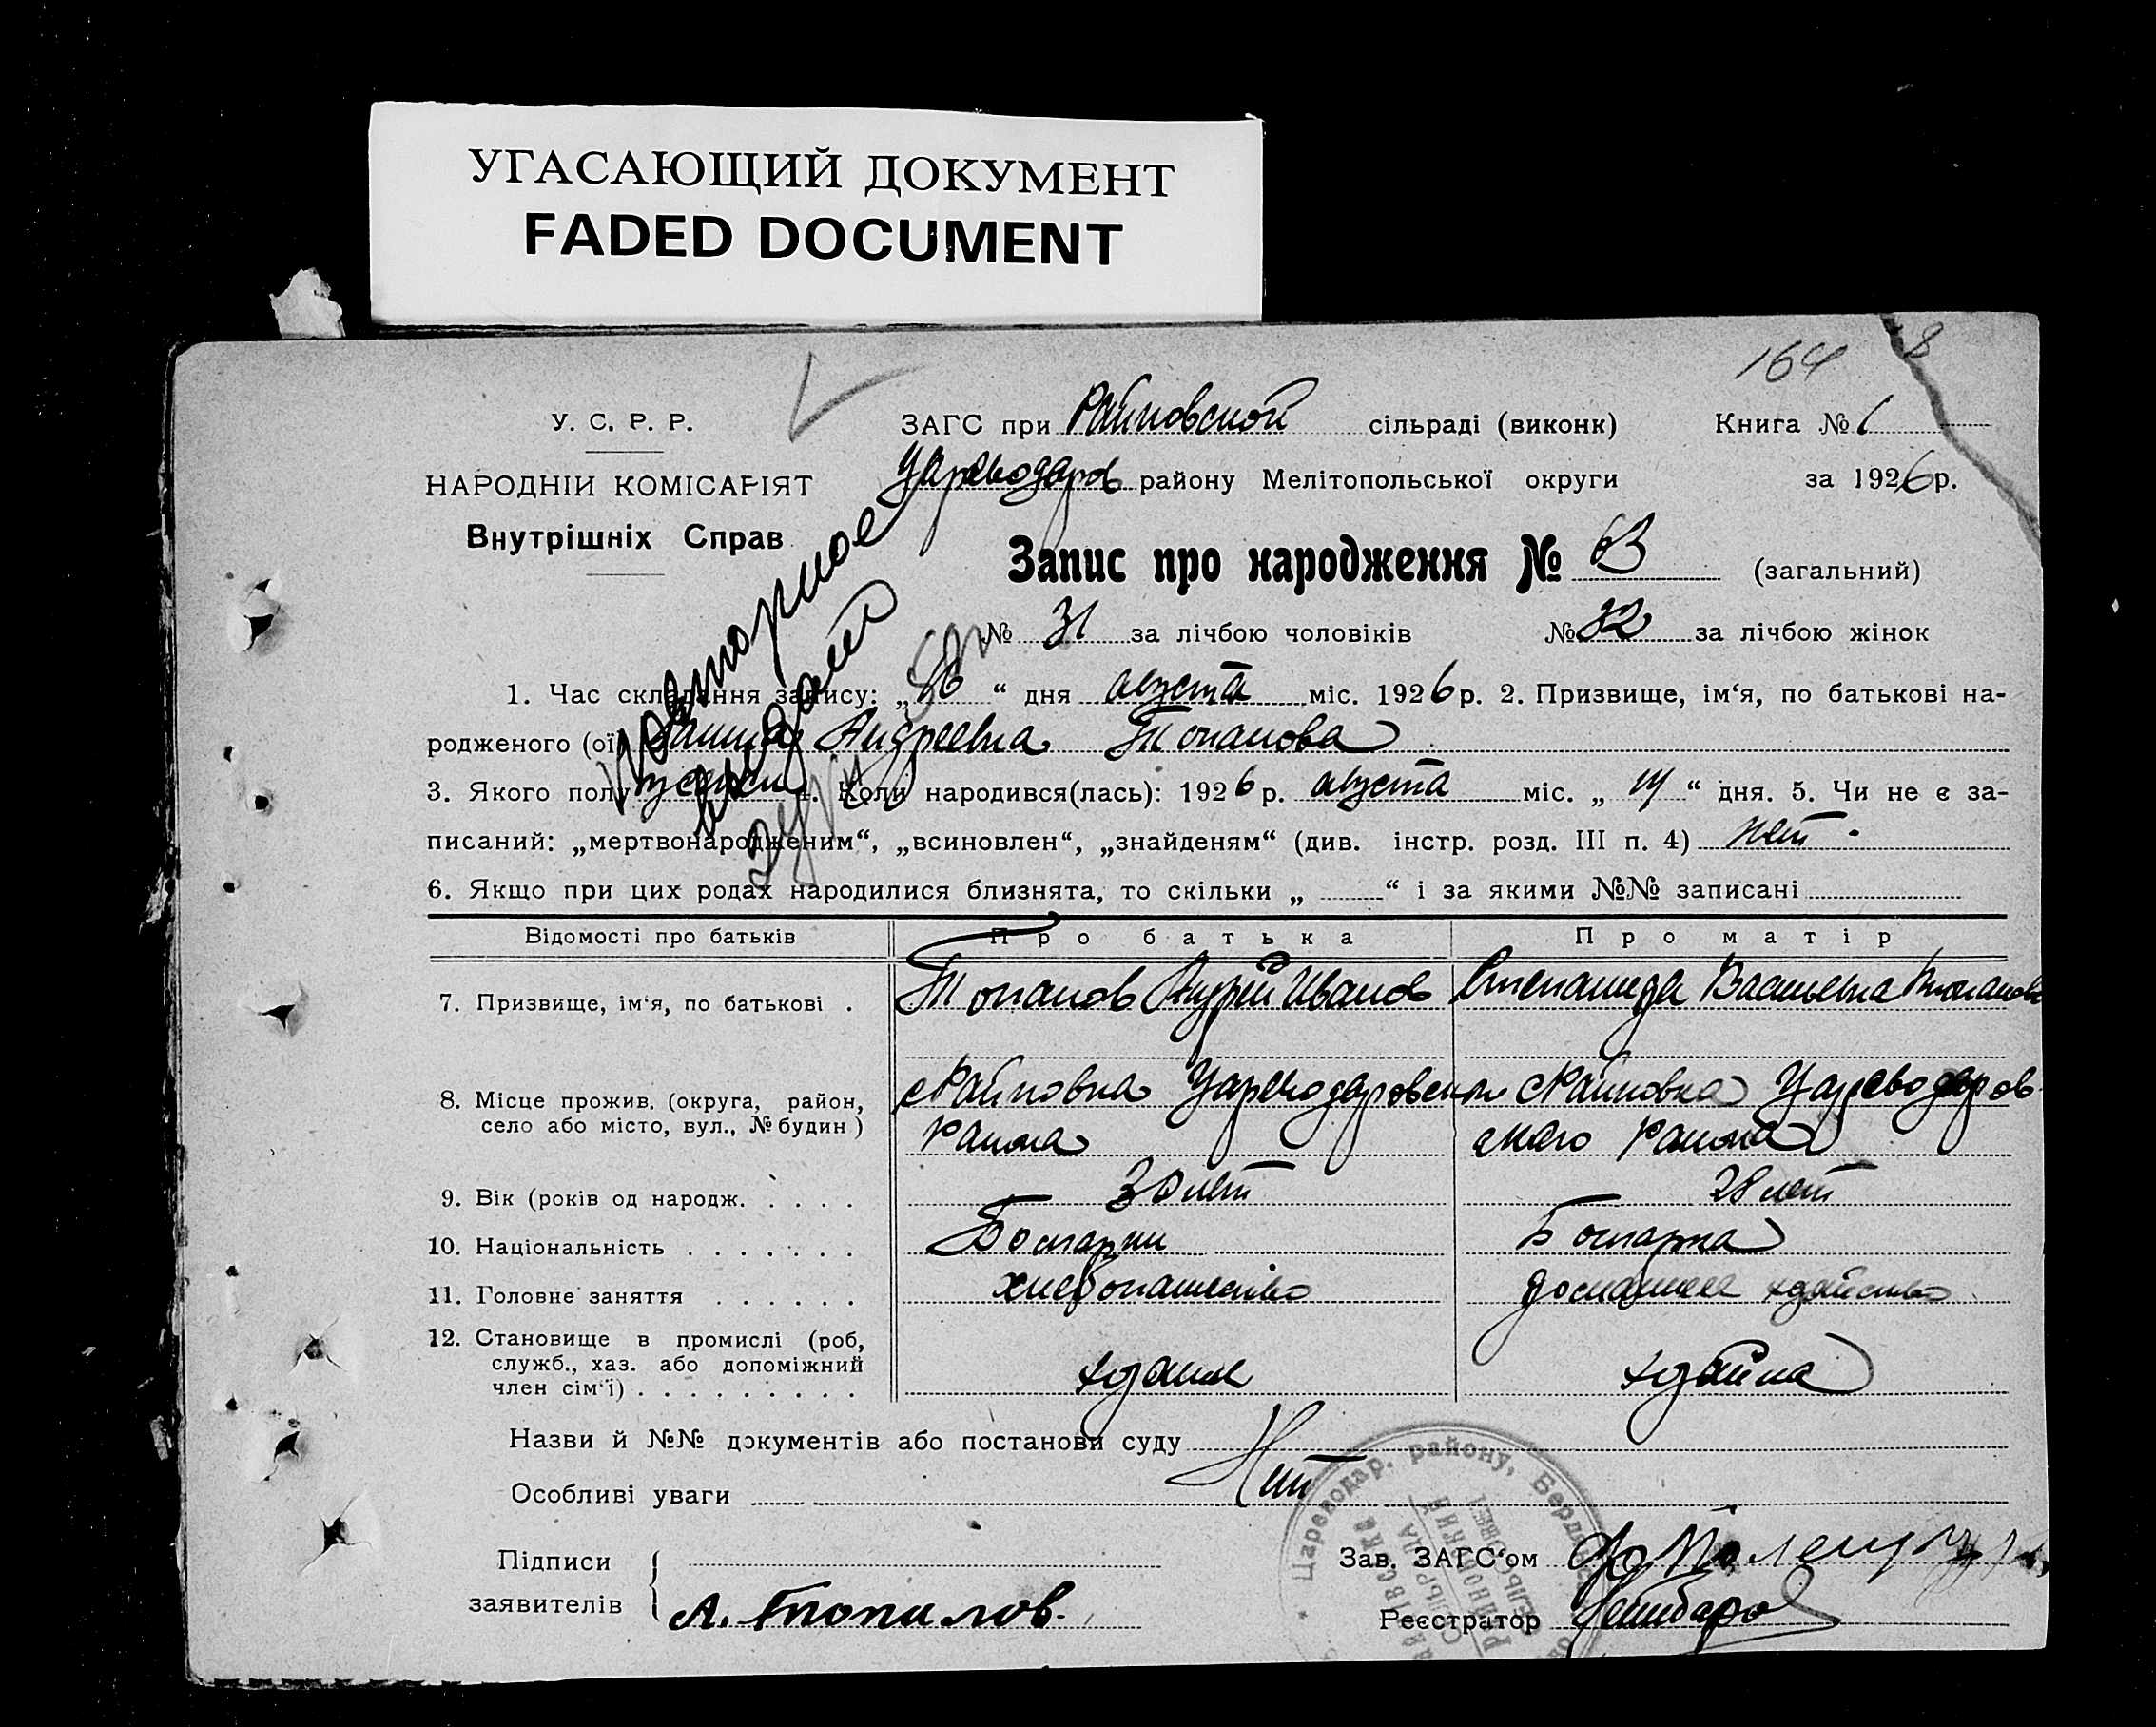 УГАСАЮЩИЙ ДОКУМЕНТ
FADED DOCUMENT
164 8
У. С. Р. Р.
НАРОДНІЙ КОМІСАРІЯТ
Внутрішніх Справ
ЗАГС при Райновской сільраді (виконк) Книга № 1
Цареводаров району Мелітопольської округи за 1926 р.
Запис про народження № 63 (загальний)
№ 31 за лічбою чоловіків № 32 за лічбою жінок
повторное
выдано
1. Час складання запису: „ “ дня августа міс. 1926 р. 2. Призвище, ім‘я, по батькові на-
родженого (ої) Андреевна Топалова
3. Якого полу женск 4. Коли народився(лась): 1926 р. августа міс. „14“ дня. 5. Чи не є за-
писаний: „мертвонародженим“, „всиновлен“, „знайденям“ (див. інстр. розд. III п. 4) нет
6. Якщо при цих родах народилися близнята, то скільки „ “ і за якими №№ записані
Відомості про батьків Про батька Про матір
7. Призвище, ім‘я, по батькові . Топалов Андрей Иванов Степанида Васильевна Топалова
8. Місце прожив. (округа, район, село або місто, вул., № будин) с Райновка Цареводаровскаи с Райновка Цареводаров
раиона ского раиона
9. Вік (років од народж. . . . . 30 лет 28 лет
10. Національність . . . . . . . Болгарин Болгарка
11. Головне заняття . . . . . . хлебопашество домашнее хдяйство
12. Становище в промислі (роб,
служб., хаз. або допоміжний
член сім‘ї) . . . . . . . . . хдяин хдяйка
Назви й №№ документів або постанови суду
Особливі уваги Нит
Підписи
заявителів А. Топалов.
Зав. ЗАГС‘ом
Реєстратор
Цареводар. району, Бердян